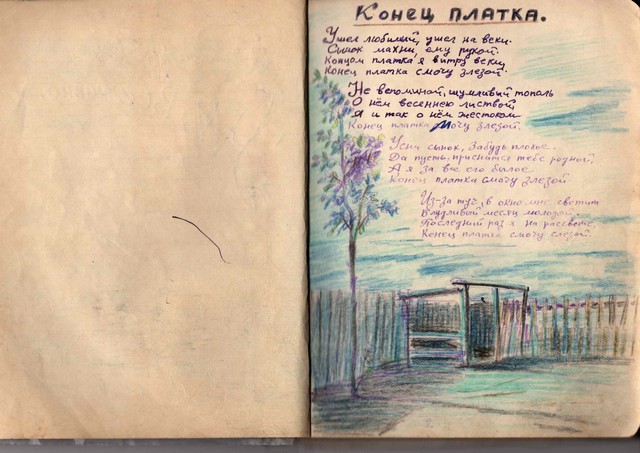 Конец платка.
Ушел любимый, ушел на веки.
Сынок махни, ему рукой.
Концом платка я вытру веки
Конец платка смочу злезой.
Не вспоминой, шумливый тополь
О нём весеннею листвой
Я и так о нём жестоком
Конец платка мочу злезой.
Усни сынок, забудь плохое.
Да пусть, приснится тебе родной,
А я за все его былое
Конец платка смочу злезой
Из-за туч, в окно мне светит
Блудливый месяц молодой.
Последний раз я на рассвете,
Конец платка смочу слезой.